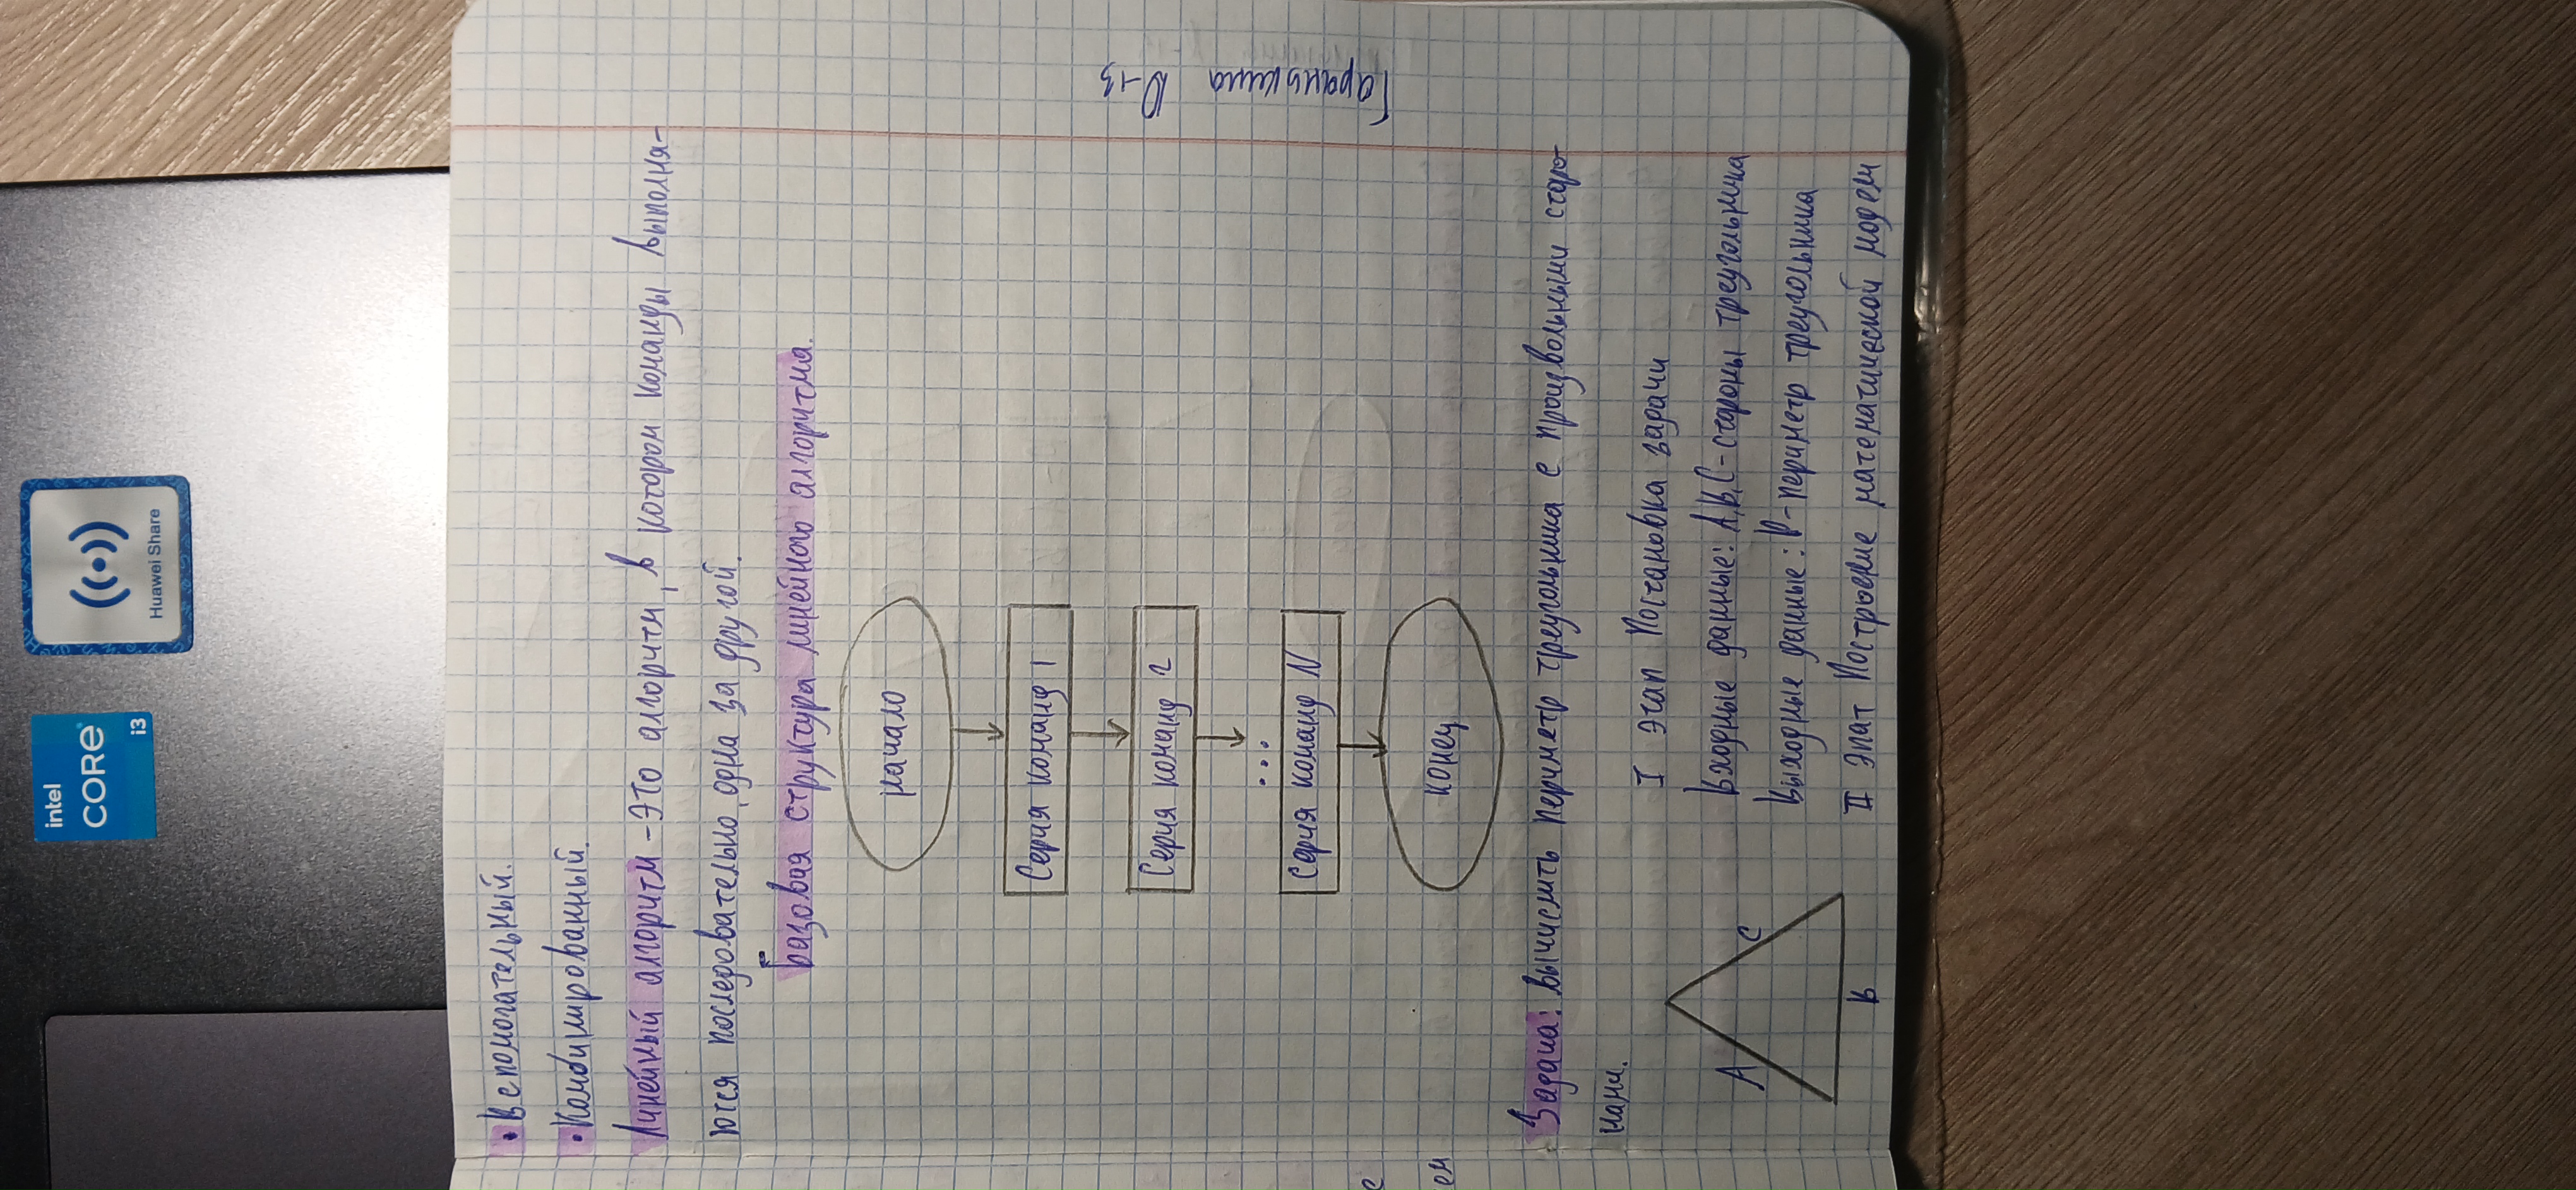 • Вспомогательный.
• Комбинированный.
Линейный алгоритм - Это алгоритм, в котором команды выполня-
ются последовательно одна за другой.
Базовая структура линейного алгоритма.
начало
Серия команд 1
Серия команд 2
...
Серия команд N
конец
Задача: вычислить периметр треугольника с произвольными сторо-
нами.
I Этап Постановка задачи
Входные данные: A, B, C - стороны треугольника
Выходные данные: P - периметр треугольника
II Эпат Построение математической модели
A
C
B
Гаранькина
Ю-13
intel
CORE
i3
Huawei Share
с
ем